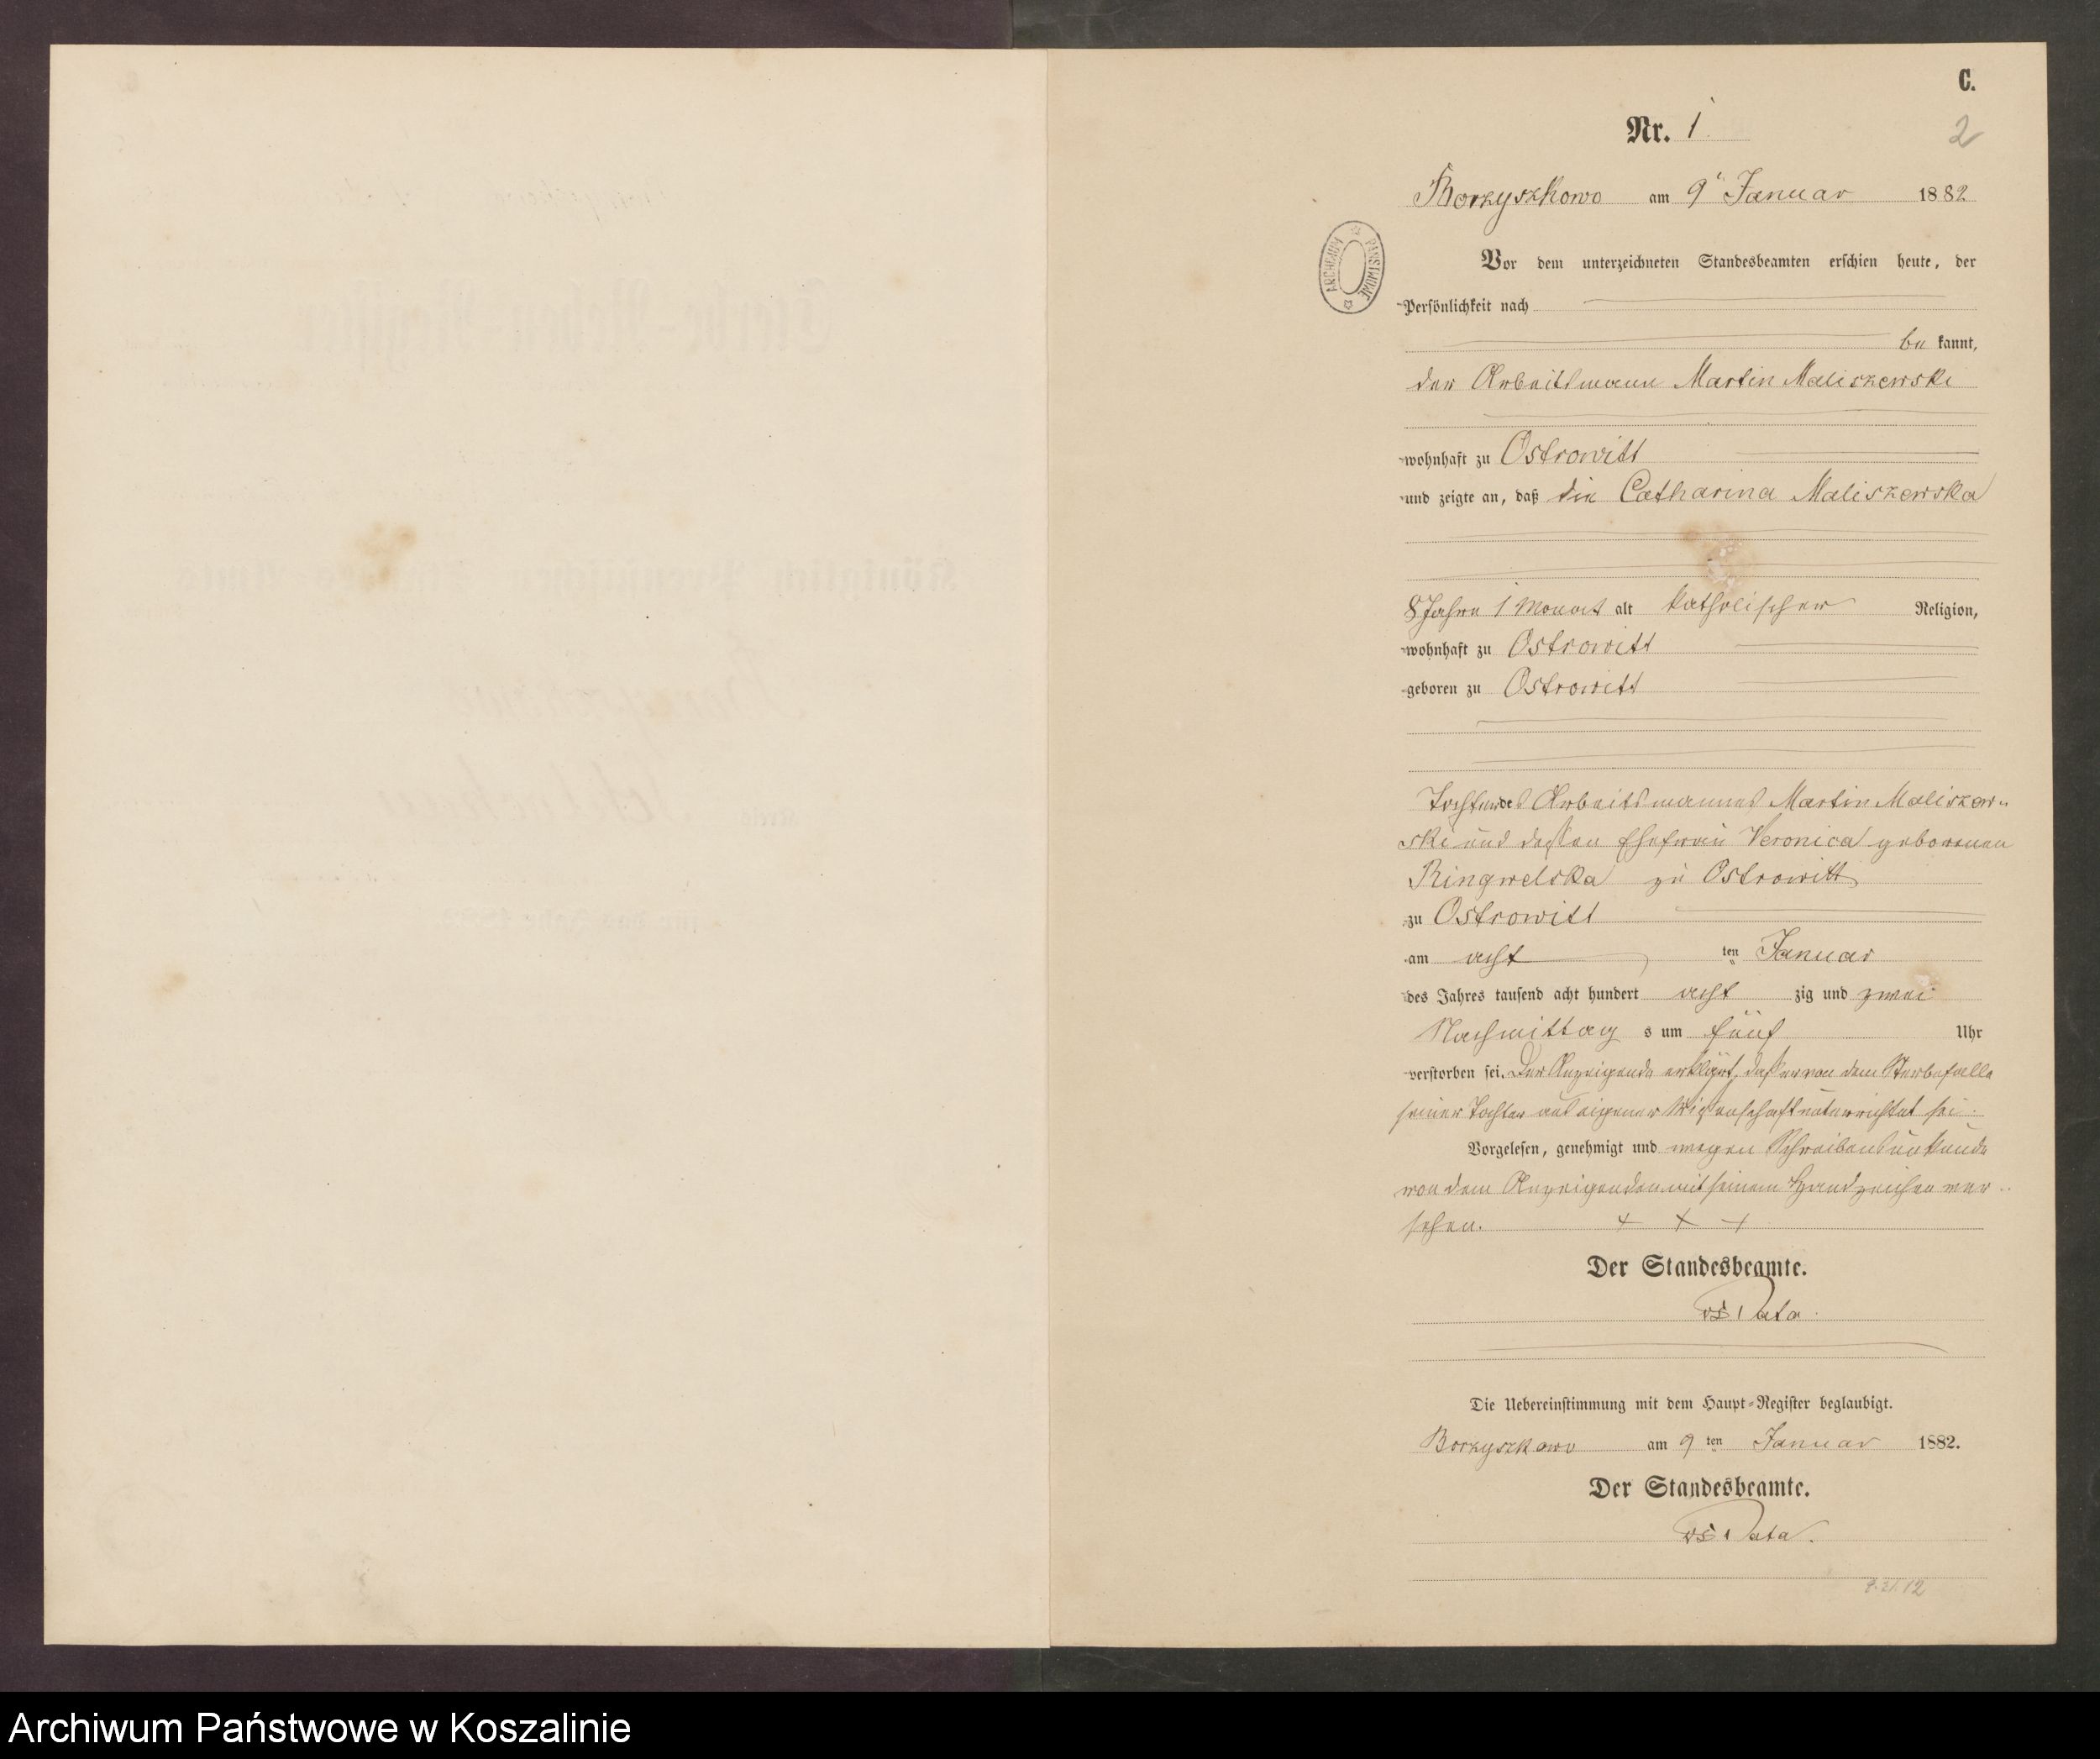 C.
Nr. 1
2
Borzyszkowo am 9ᵗ Januar 1882
Vor dem unterzeichneten Standesbeamten erschien heute, der
Persönlichkeit nach
be kannt,
der Arbeitsmann Martin Maliszewski
ARCHIWUM PAŃSTWOWE
wohnhaft zu Ostrowitt
und zeigte an, daß die Catharina Maliszewska
8 Jahre 1 Monat alt katholischer Religion,
wohnhaft zu Ostrowitt
geboren zu Ostrowitt
Tochter des Arbeitsmannes Martin Maliszew-
ski und dessen Ehefrau Veronica geborenen
Ringwelska zu Ostrowitt
zu Ostrowitt
am acht ten Januar
des Jahres tausend acht hundert acht zig und zwei
Nachmittag s um fünf Uhr
verstorben sei. Der Anzeigende erklärt, daß er von dem Sterbefalle
seiner Tochter aus eigener Wissenschaft unterrichtet sei.
Vorgelesen, genehmigt und wegen Schreibensunkunde
von dem Anzeigenden mit seinem Handzeichen ver-
sehen. + + +
Der Standesbeamte.
Die Uebereinstimmung mit dem Haupt-Register beglaubigt.
Borzyszkowo am 9 ten Januar 1882.
Der Standesbeamte.
Archiwum Państwowe w Koszalinie